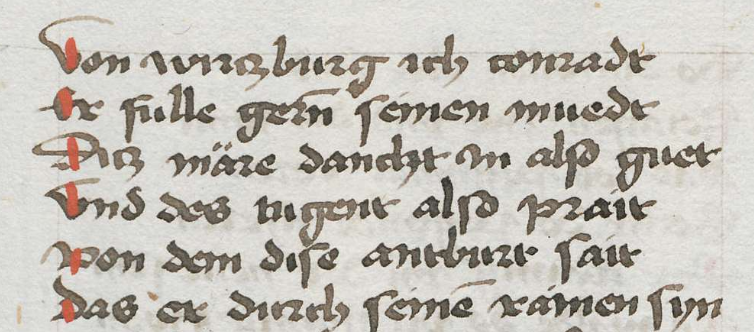 Von wirtzburg ich conradt
Er fulle gern̄ seinen muedt
Ditz märe dancht in also guet
Vnd des tugent also prait
von dem dise antburt sait
das er durch seinē rainen syn